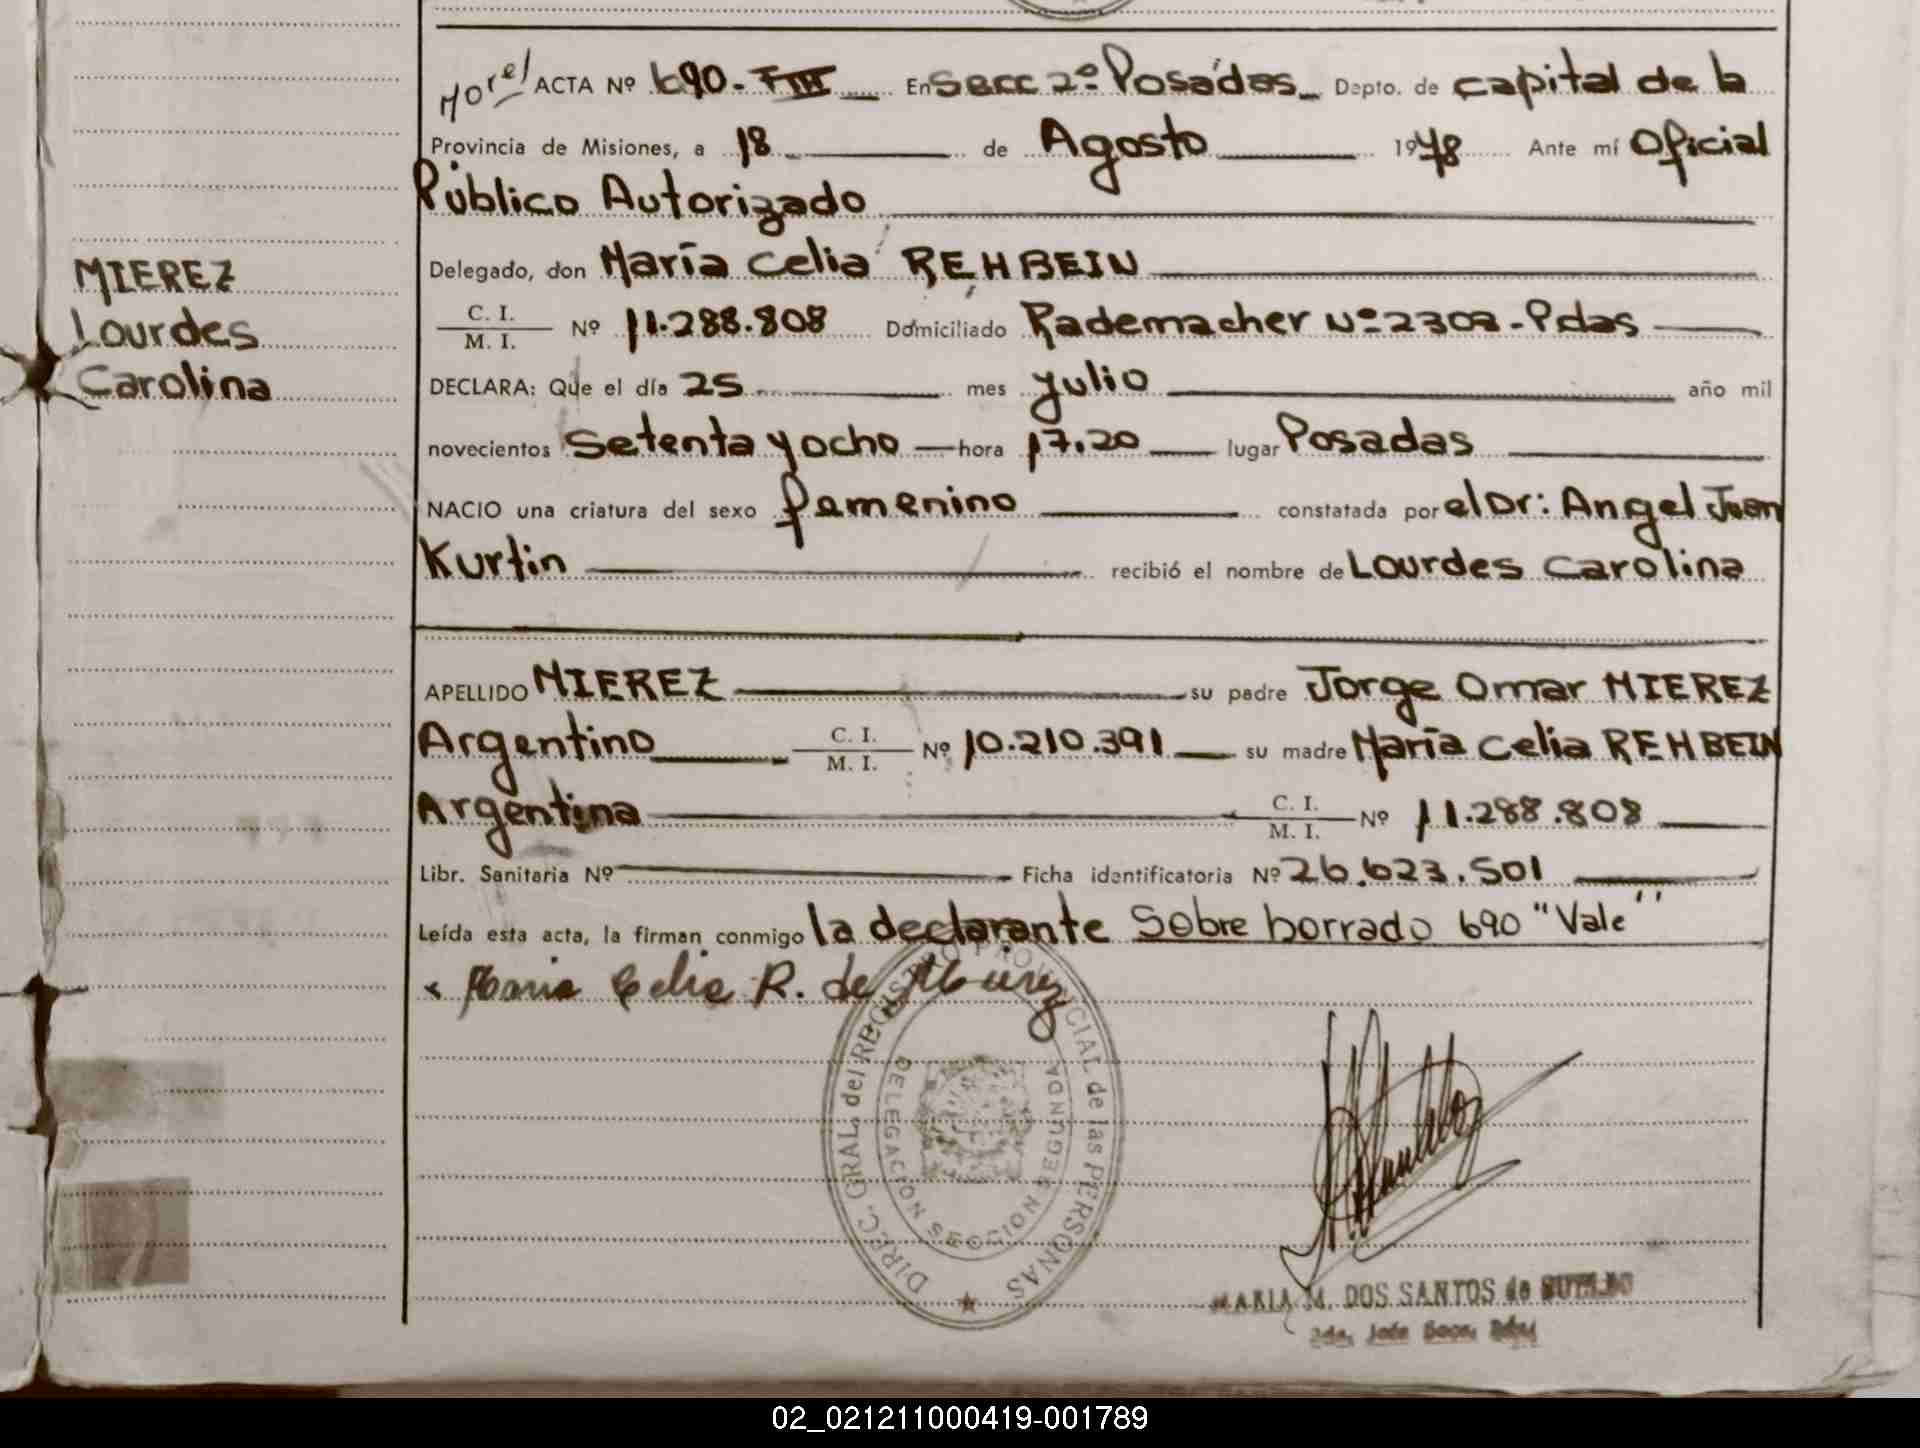 MIEREZ
Lourdes
Carolina
Morel ACTA Nº 690 - FIII En Secc 2º Posadas Depto. de capital de la
Provincia de Misiones, a 18 de Agosto 1978 Ante mí Oficial
Público Autorizado
Delegado, don María Celia REHBEIN
C. I.
M. I. Nº 11.288.808 Domiciliado Rademacher Nº 2303 - Pdas
DECLARA: Que el día 25 mes yulio año mil
novecientos setenta y ocho hora 17.20 lugar Posadas
NACIO una criatura del sexo femenino constatada por el Dr: Angel Juan
Kurtin recibió el nombre de Lourdes Carolina
APELLIDO MIEREZ su padre Jorge Omar MIEREZ
Argentino C. I. M. I. Nº 10.210.391 su madre María Celia REHBEIN
Argentina C. I. M. I. Nº 11.288.808
Libr. Sanitaria Nº Ficha identificatoria Nº 26.623.501
Leída esta acta, la firman conmigo la declarante Sobre borrado 690 "Vale"
Maria Celia R. de Mierez
DIREC. GRAL del REGISTRO PROVINCIAL de las PERSONAS
DELEGACION SEGUNDA
MARIA M. DOS SANTOS de
2da. Jefe Secc.
02_021211000419-001789